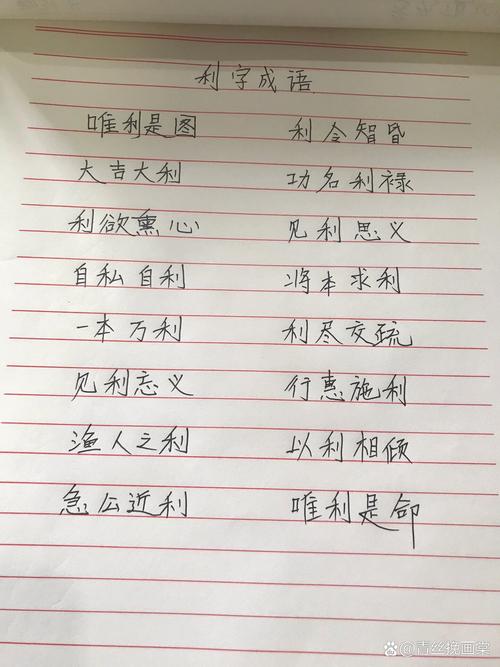 利字成语
唯利是图 利令智昏
大吉大利 功名利禄
利欲熏心 见利思义
自私自利 将本求利
一本万利 利尽交疏
见利忘义 行惠施利
渔人之利 以利相倾
急公近利 唯利是命
@青丝挽画棠